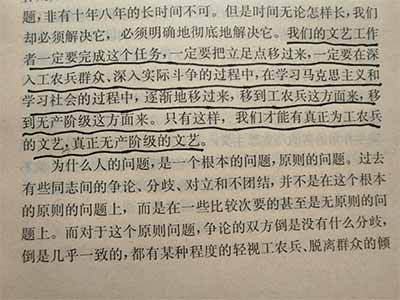 题，非有十年八年的长时间不可。但是时间无论怎样长，我们
却必须解决它，必须明确地彻底地解决它。我们的文艺工作
者一定要完成这个任务，一定要把立足点移过来，一定要在深
入工农兵群众、深入实际斗争的过程中，在学习马克思主义和
学习社会的过程中，逐渐地移过来，移到工农兵这方面来，移
到无产阶级这方面来。只有这样，我们才能有真正为工农兵
的文艺，真正无产阶级的文艺。
为什么人的问题，是一个根本的问题，原则的问题。过去
有些同志间的争论、分歧、对立和不团结，并不是在这个根本
的原则的问题上，而是在一些比较次要的甚至是无原则的问
题上。而对于这个原则问题，争论的双方倒是没有什么分歧，
倒是几乎一致的，都有某种程度的轻视工农兵、脱离群众的倾